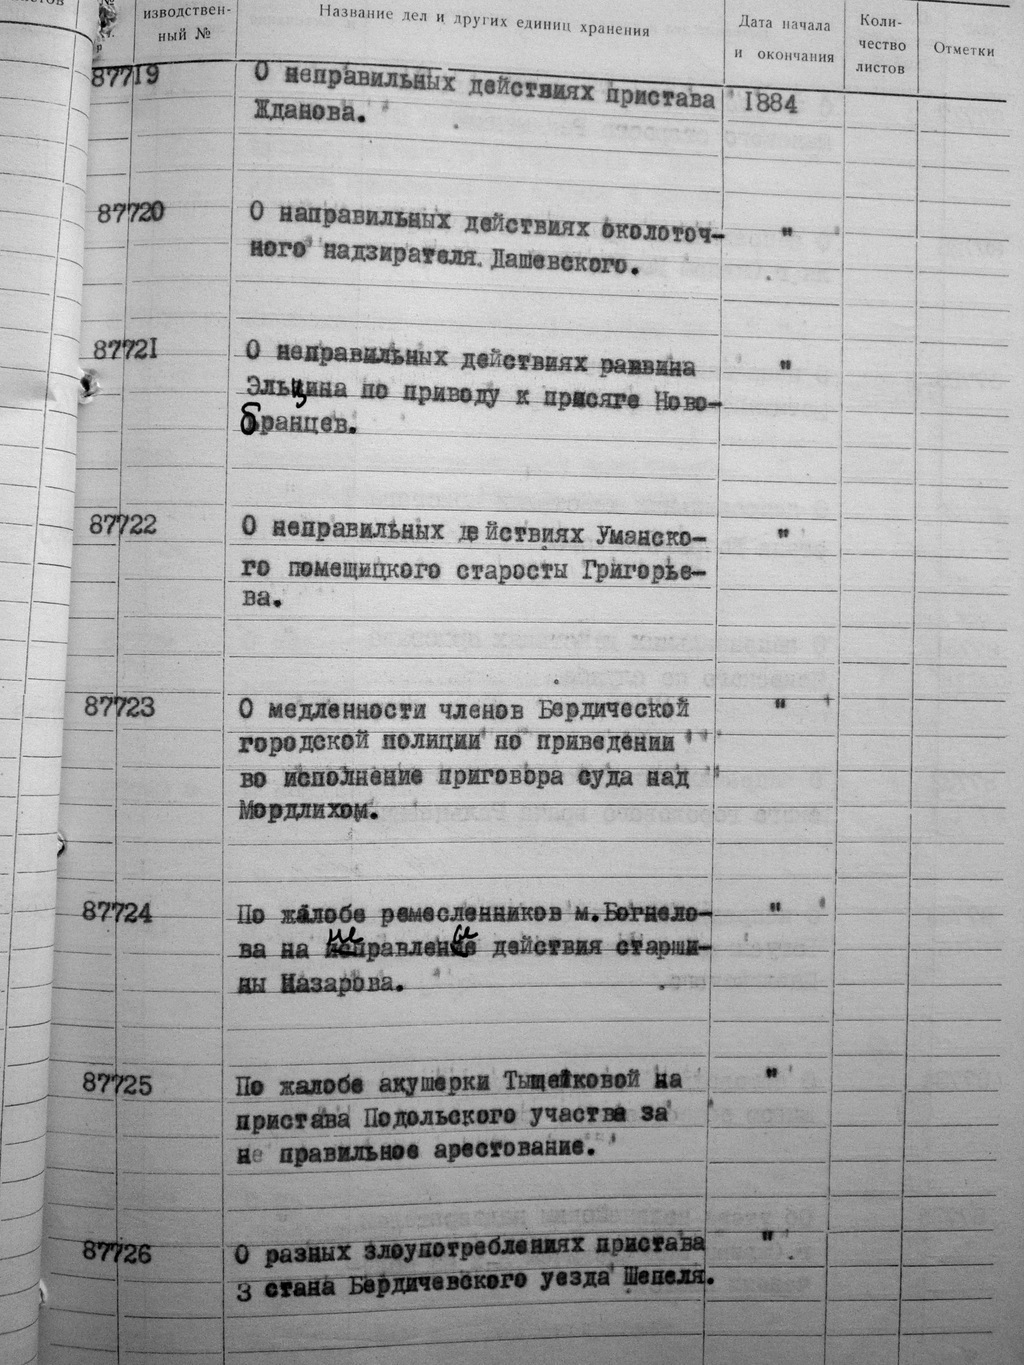 изводствен-
ный №
Название дел и других единиц хранения
Дата начала
и окончания
Коли-
чество
листов
Отметки
87719
О неправильных действиях пристава
1884
Жданова.
87720
О направильных действиях околоточ-
"
ного надзирателя Дашевского.
87721
О неправильных действиях раввина
"
Эльцина по приводу к присяге Ново-
бранцев.
87722
О неправильных действиях Уманско-
"
го помещицкого старосты Григорье-
ва.
87723
О медленности членов Бердической
"
городской полиции по приведении
во исполнение приговора суда над
Мордлихом.
87724
По жалобе ремесленников м.Богнело-
"
ва на действия старши-
ны Назарова.
87725
По жалобе акушерки на
"
пристава Подольского участва за
не правильное арестование.
87726
О разных злоупотреблениях пристава
"
3 стана Бердичевского уезда Шепеля.